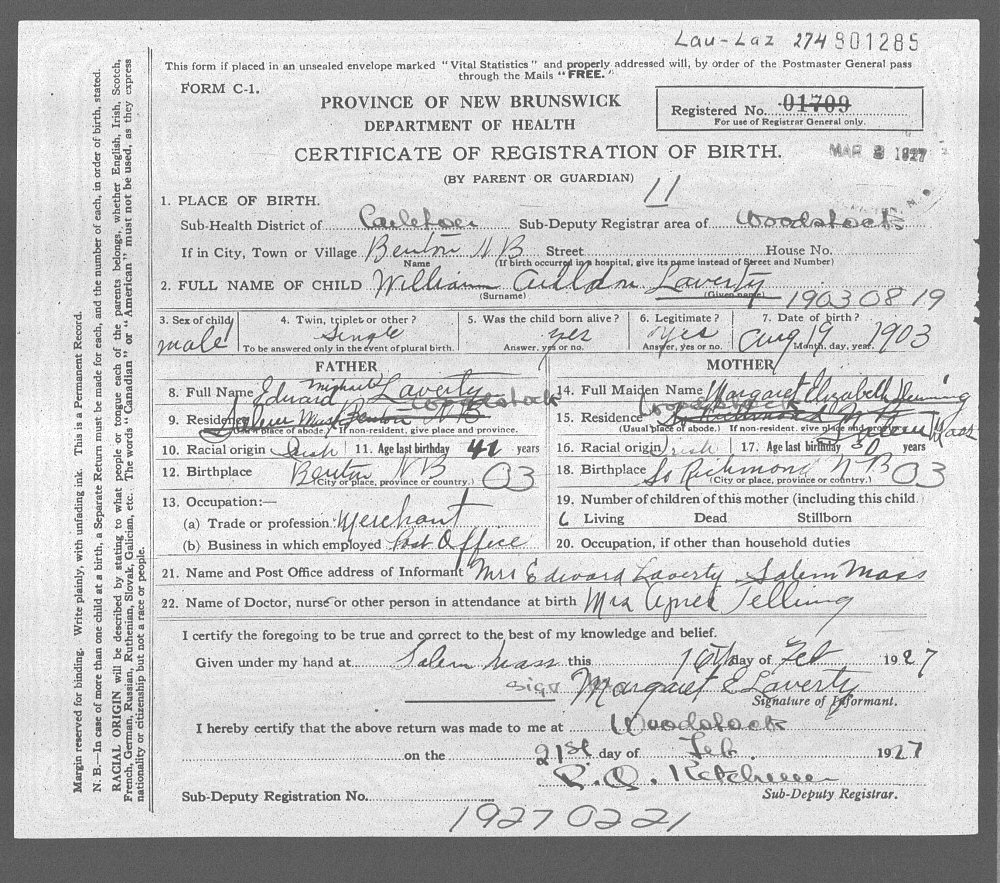 Lau-Laz 274 S01285
This form if placed in an unsealed envelope marked "Vital Statistics" and properly addressed will, by order of the Postmaster General pass
through the Mails "FREE."
FORM C-1.
PROVINCE OF NEW BRUNSWICK
DEPARTMENT OF HEALTH
Registered No. 01709
For use of Registrar General only.
CERTIFICATE OF REGISTRATION OF BIRTH.
MAR 8 1927
(BY PARENT OR GUARDIAN)
11
1. PLACE OF BIRTH.
Sub-Health District of Carleton Sub-Deputy Registrar area of Woodstock
If in City, Town or Village Benton N B Street House No.
Name (If birth occurred in a hospital, give its name instead of Street and Number)
2. FULL NAME OF CHILD William Laverty
(Surname) (Given name) 1903 08 19
3. Sex of child 4. Twin, triplet or other? 5. Was the child born alive? 6. Legitimate? 7. Date of birth?
male Single yes Yes Aug 19 1903
To be answered only in the event of plural birth. Answer, yes or no. Answer, yes or no. Month, day, year.
FATHER MOTHER
8. Full Name Edward Michael Laverty 14. Full Maiden Name Margaret Elizabeth
9. Residence Woodstock Benton N B 15. Residence Woodstock So Richmond N B Salem Mass
(Usual place of abode.) If non-resident, give place and province. (Usual place of abode.) If non-resident, give place and province.
10. Racial origin Irish 11. Age last birthday 42 years 16. Racial origin Irish 17. Age last birthday 30 years
12. Birthplace Benton N B 03 18. Birthplace So Richmond N B 03
(City or place, province or country.) (City or place, province or country.)
13. Occupation:— 19. Number of children of this mother (including this child.
(a) Trade or profession Merchant 6 Living Dead Stillborn
(b) Business in which employed Post Office 20. Occupation, if other than household duties
21. Name and Post Office address of Informant Mrs Edward Laverty Salem Mass
22. Name of Doctor, nurse or other person in attendance at birth Mrs Agnes
I certify the foregoing to be true and correct to the best of my knowledge and belief.
Given under my hand at Salem Mass this 16th day of Feb 1927
Sign Margaret E Laverty
Signature of Informant.
I hereby certify that the above return was made to me at Woodstock
on the 21st day of Feb 1927
Sub-Deputy Registration No. Sub-Deputy Registrar.
19270221
Margin reserved for binding. Write plainly, with unfading ink. This is a Permanent Record.
N. B.—In case of more than one child at a birth, a Separate Return must be made for each, and the number of each, in order of birth, stated.
RACIAL ORIGIN will be described by stating to what people or tongue each of the parents belongs, whether English, Irish, Scotch,
French, German, Russian, Ruthenian, Slovak, Galician, etc. The words "Canadian" or "American" must not be used, as they express
nationality or citizenship but not a race or people.